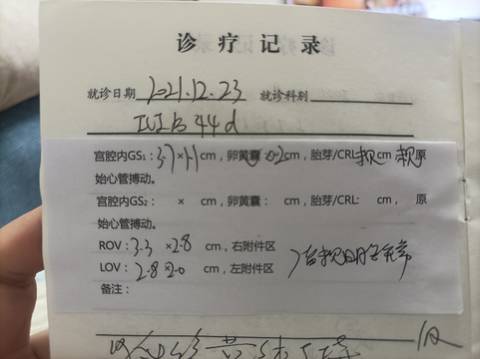 诊疗记录
就诊日期 2021.12.23 就诊科别
IUI后44d
宫腔内GS₁：3.7×1.1cm，卵黄囊 0.2cm，胎芽/CRL未见cm 未见原
始心管搏动。
宫腔内GS₂： × cm，卵黄囊： cm，胎芽/CRL: cm， 原
始心管搏动。
ROV：3.3 ×2.8 cm，右附件区
LOV：2.8 ×2.0 cm，左附件区 未见明显异常
备注：